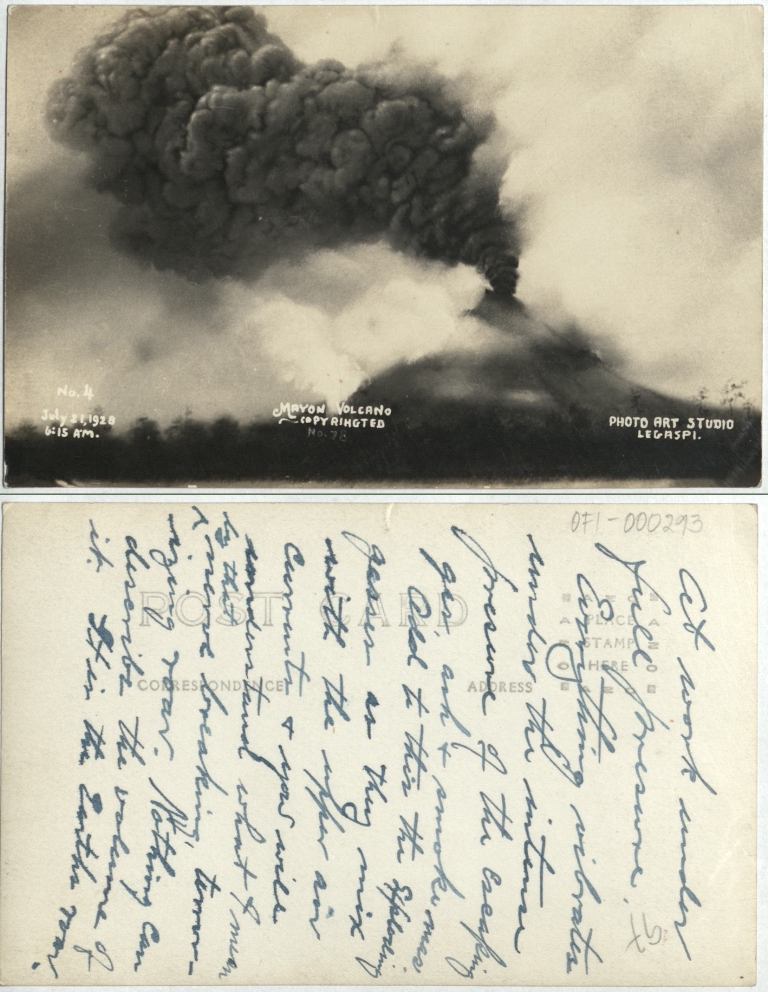 No. 4
July 21, 1928
6:15 A.M.
MAYON VOLCANO
COPYRIHGTED
No. 78
PHOTO ART STUDIO
LEGASPI.
OFI-000293
POST CARD
CORRESPONDENCE
ADDRESS
PLACE
STAMP
HERE
At work under
full pressure.
Everything vibrates
under the intense
pressure of the escaping
gas ash & smoke mass
Add to this the exploding
gasses as they mix
with the upper air
currents & you will
understand what I mean
by the
& nerve breaking terror-
izing roar. Nothing can
describe the volume of
it. It is the Earths roar.